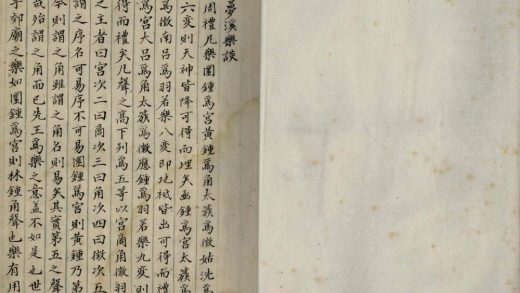 夢溪樂談
周禮凡樂圜鍾爲宮黃鍾爲角太蔟爲徵姑洗爲
六變則天神皆降可得而禮矣凾鍾爲宮太蔟爲
爲徵南呂爲羽若樂八變即地祗皆出可得而禮
爲宮大呂爲角太蔟爲徵應鍾爲羽若樂九變則
得而禮矣凡聲之高下列爲五等以宮商角徵羽
之主者曰宮次二曰商次三曰角次四曰徵次五
謂之序名可易序不可易圜鍾爲宮則黃鍾乃第
今則謂之角雖謂之角名則易矣其實第五之聲
哉殆謂之角而已先王爲樂之意蓋不如是也世
乎郊廟之樂如圜鍾爲宮則林鍾角聲也樂有用